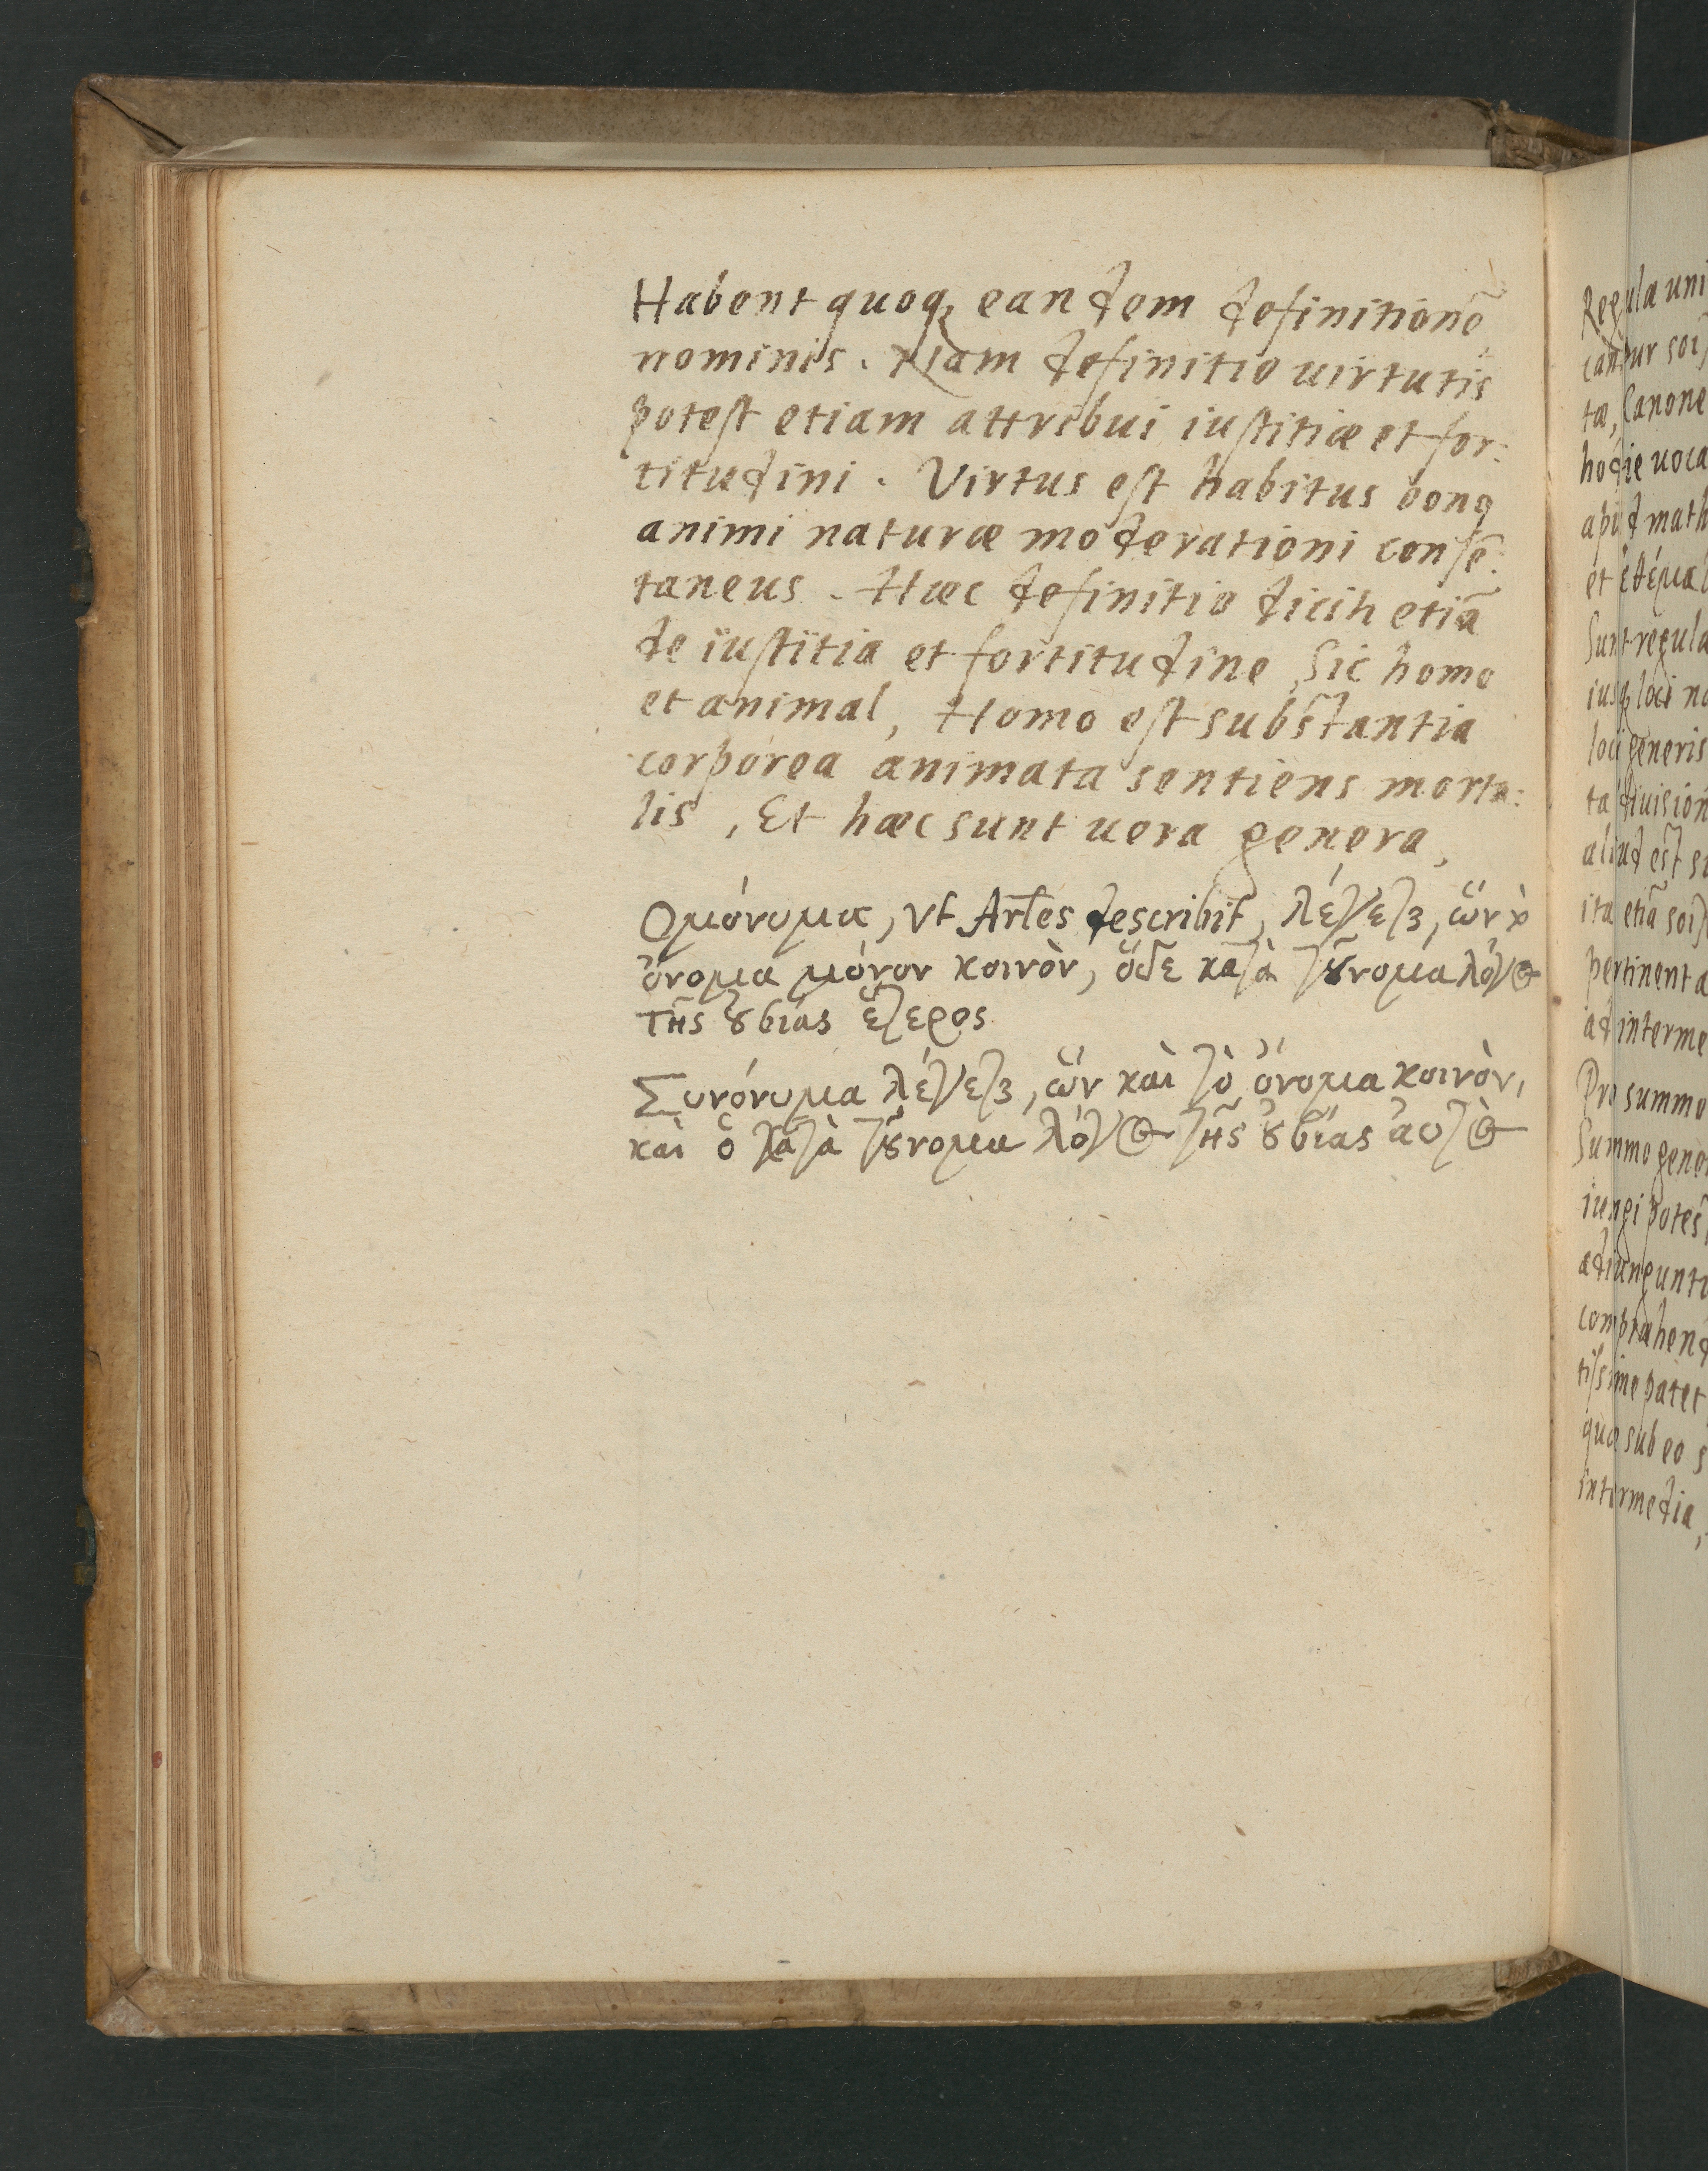 Habent quoqꝫ eandem definitionē
nominis. Nam definitio uirtutis
potest etiam attribui iustitiæ et for:
titudini. Virtus est habitus bonꝰ
animi naturæ moderationi consē:
taneus. Hæc definitio dicit etiā
de iustitia et fortitudine, Sic homo
et animal, Homo est substantia
corporea animata sentiens morta:
lis, Et hæc sunt uera genera,
Ομόνυμα, Vt Artẽs describit, λέγεται, ὥν
ὄνομα μόνον κοινὸν, ὅδε κατὰ τοὔνομα λόγος
της οὐσίας ἕτερος
Συνόνυμα λέγεται, ὥν καὶ τὸ ὄνομα κοινὸν,
καὶ ὁ κατὰ τοὔνομα λόγος τῆς οὐσίας αὐτὸς
Regula uni
cantur
tæ, Canone
hodie uoca
apud math
et
Sunt regula
loci no
loci generis
ta diuision
aliud est
ita etiā
pertinent a
ad interme
Pro summo
Summo gene
iungi potes
adiungunt
comprahend
tissime patet
quæ sub eo s
intermedia,